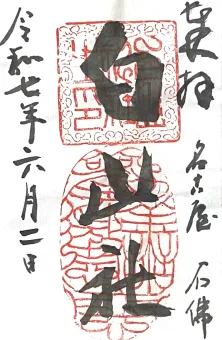 奉拝
名古屋
石佛
白山社
令和七年六月二日